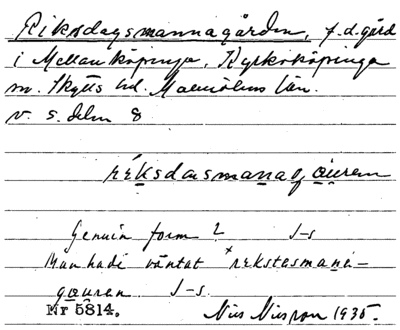 Riksdagsmannagården, f.d. gård
i Mellanköpinge, Kyrkoköpinge
sn. Skytts hd. Malmöhus län.
v. s. delen 8
riksdasmanagauren
Genuin form? J-s
Man hade väntat ×rekstasmana-
gauren. J-s.
Nr 5814. Nils Nilsson 1935.